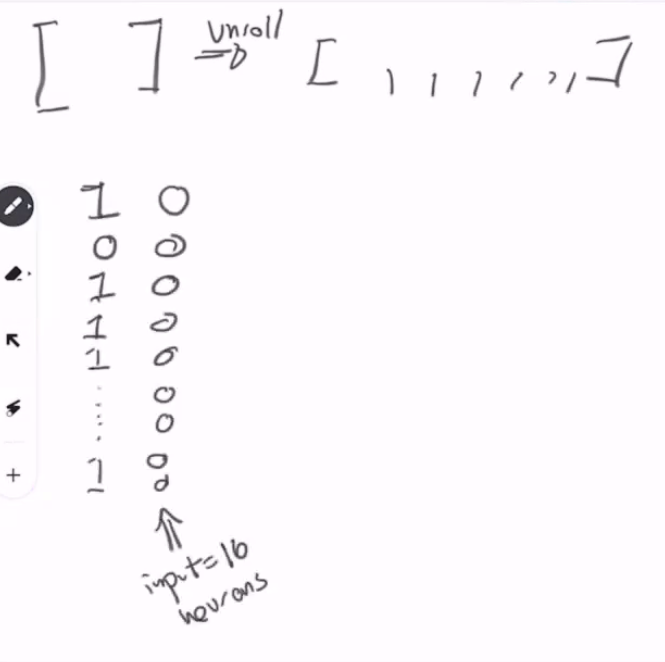 [ ] unroll ⇒ [ , , , , , , ]
1 0
0 0
1 0
1 0
1 0
. 0
⋮ 0
1 0
0
⇑
input=16
neurons